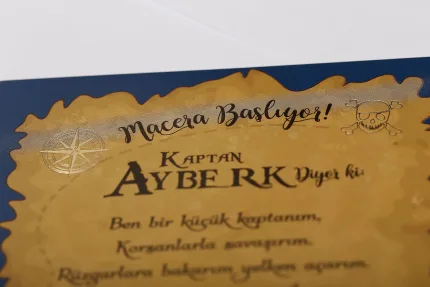 Macera Başlıyor!
KAPTAN
AYBERK Diyor ki:
Ben bir küçük kaptanım,
Korsanlarla savaşırım.
Rüzgarlara bakarım yelken açarım.